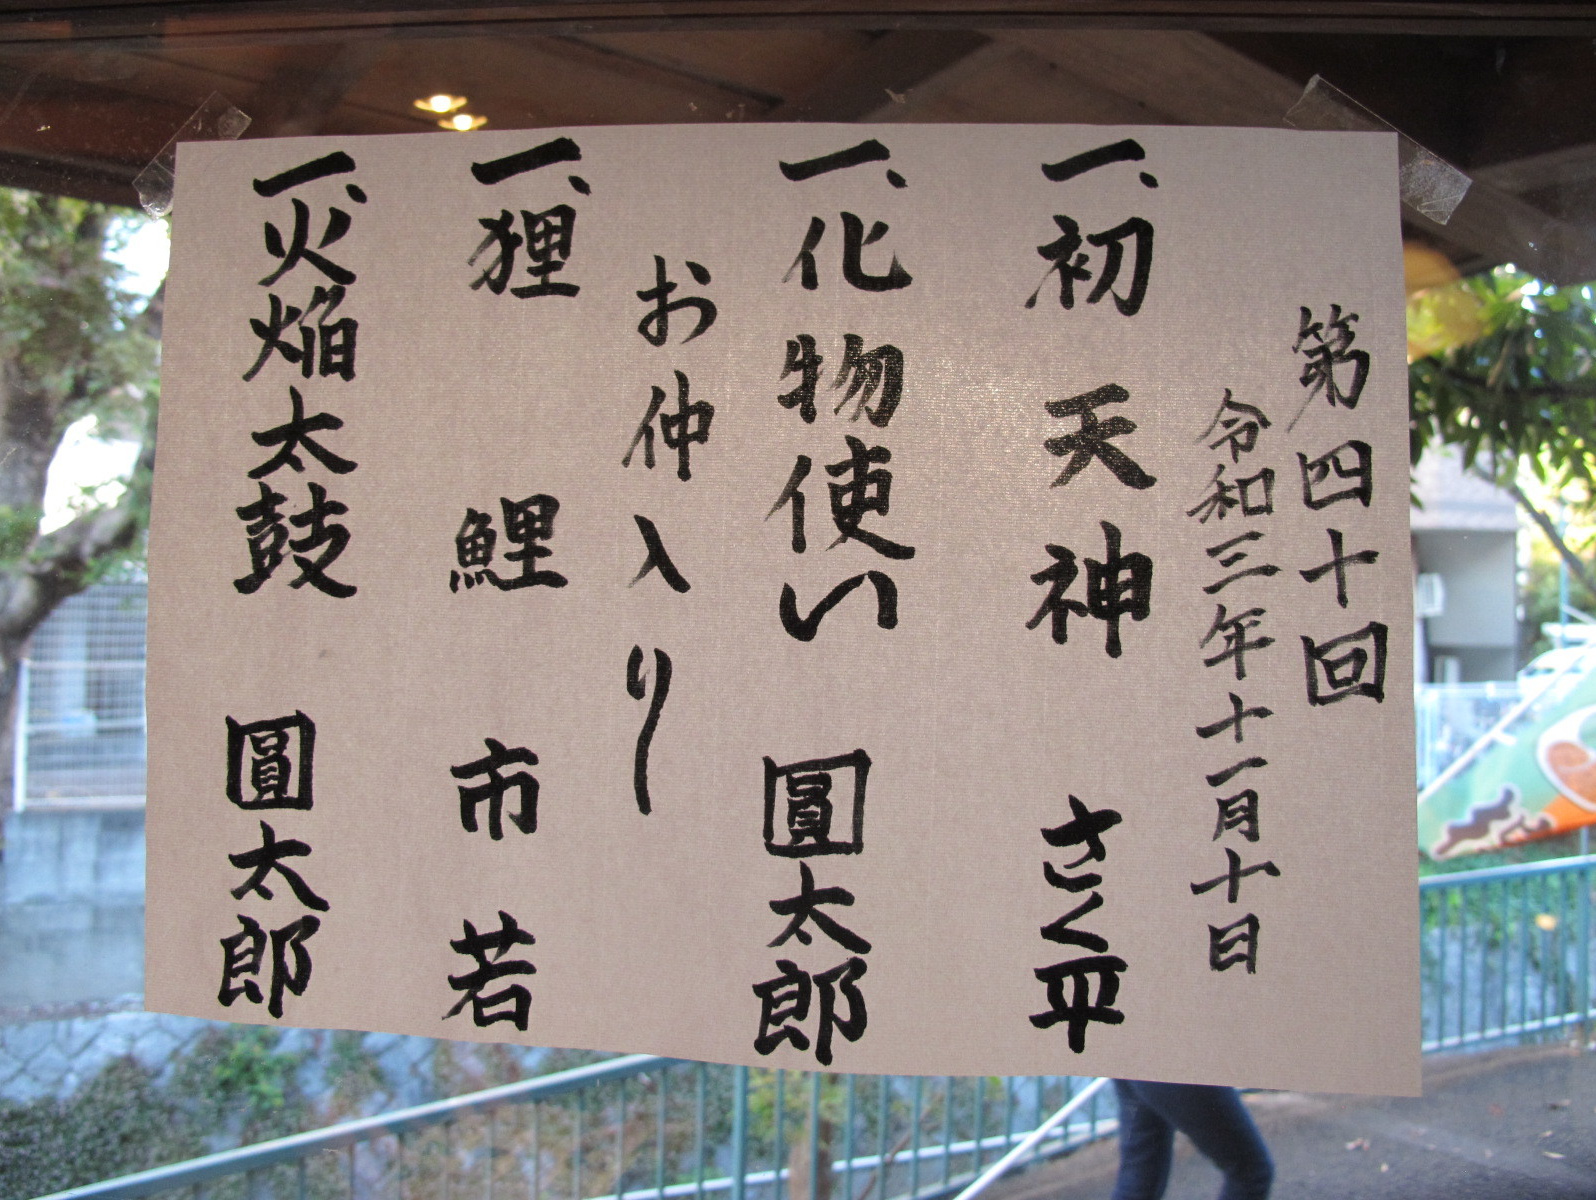 第四十回
令和三年十一月十日
一、初天神 さく平
一、化物使い 圓太郎
お仲入り
一、狸鯉 市若
一、火焔太鼓 圓太郎